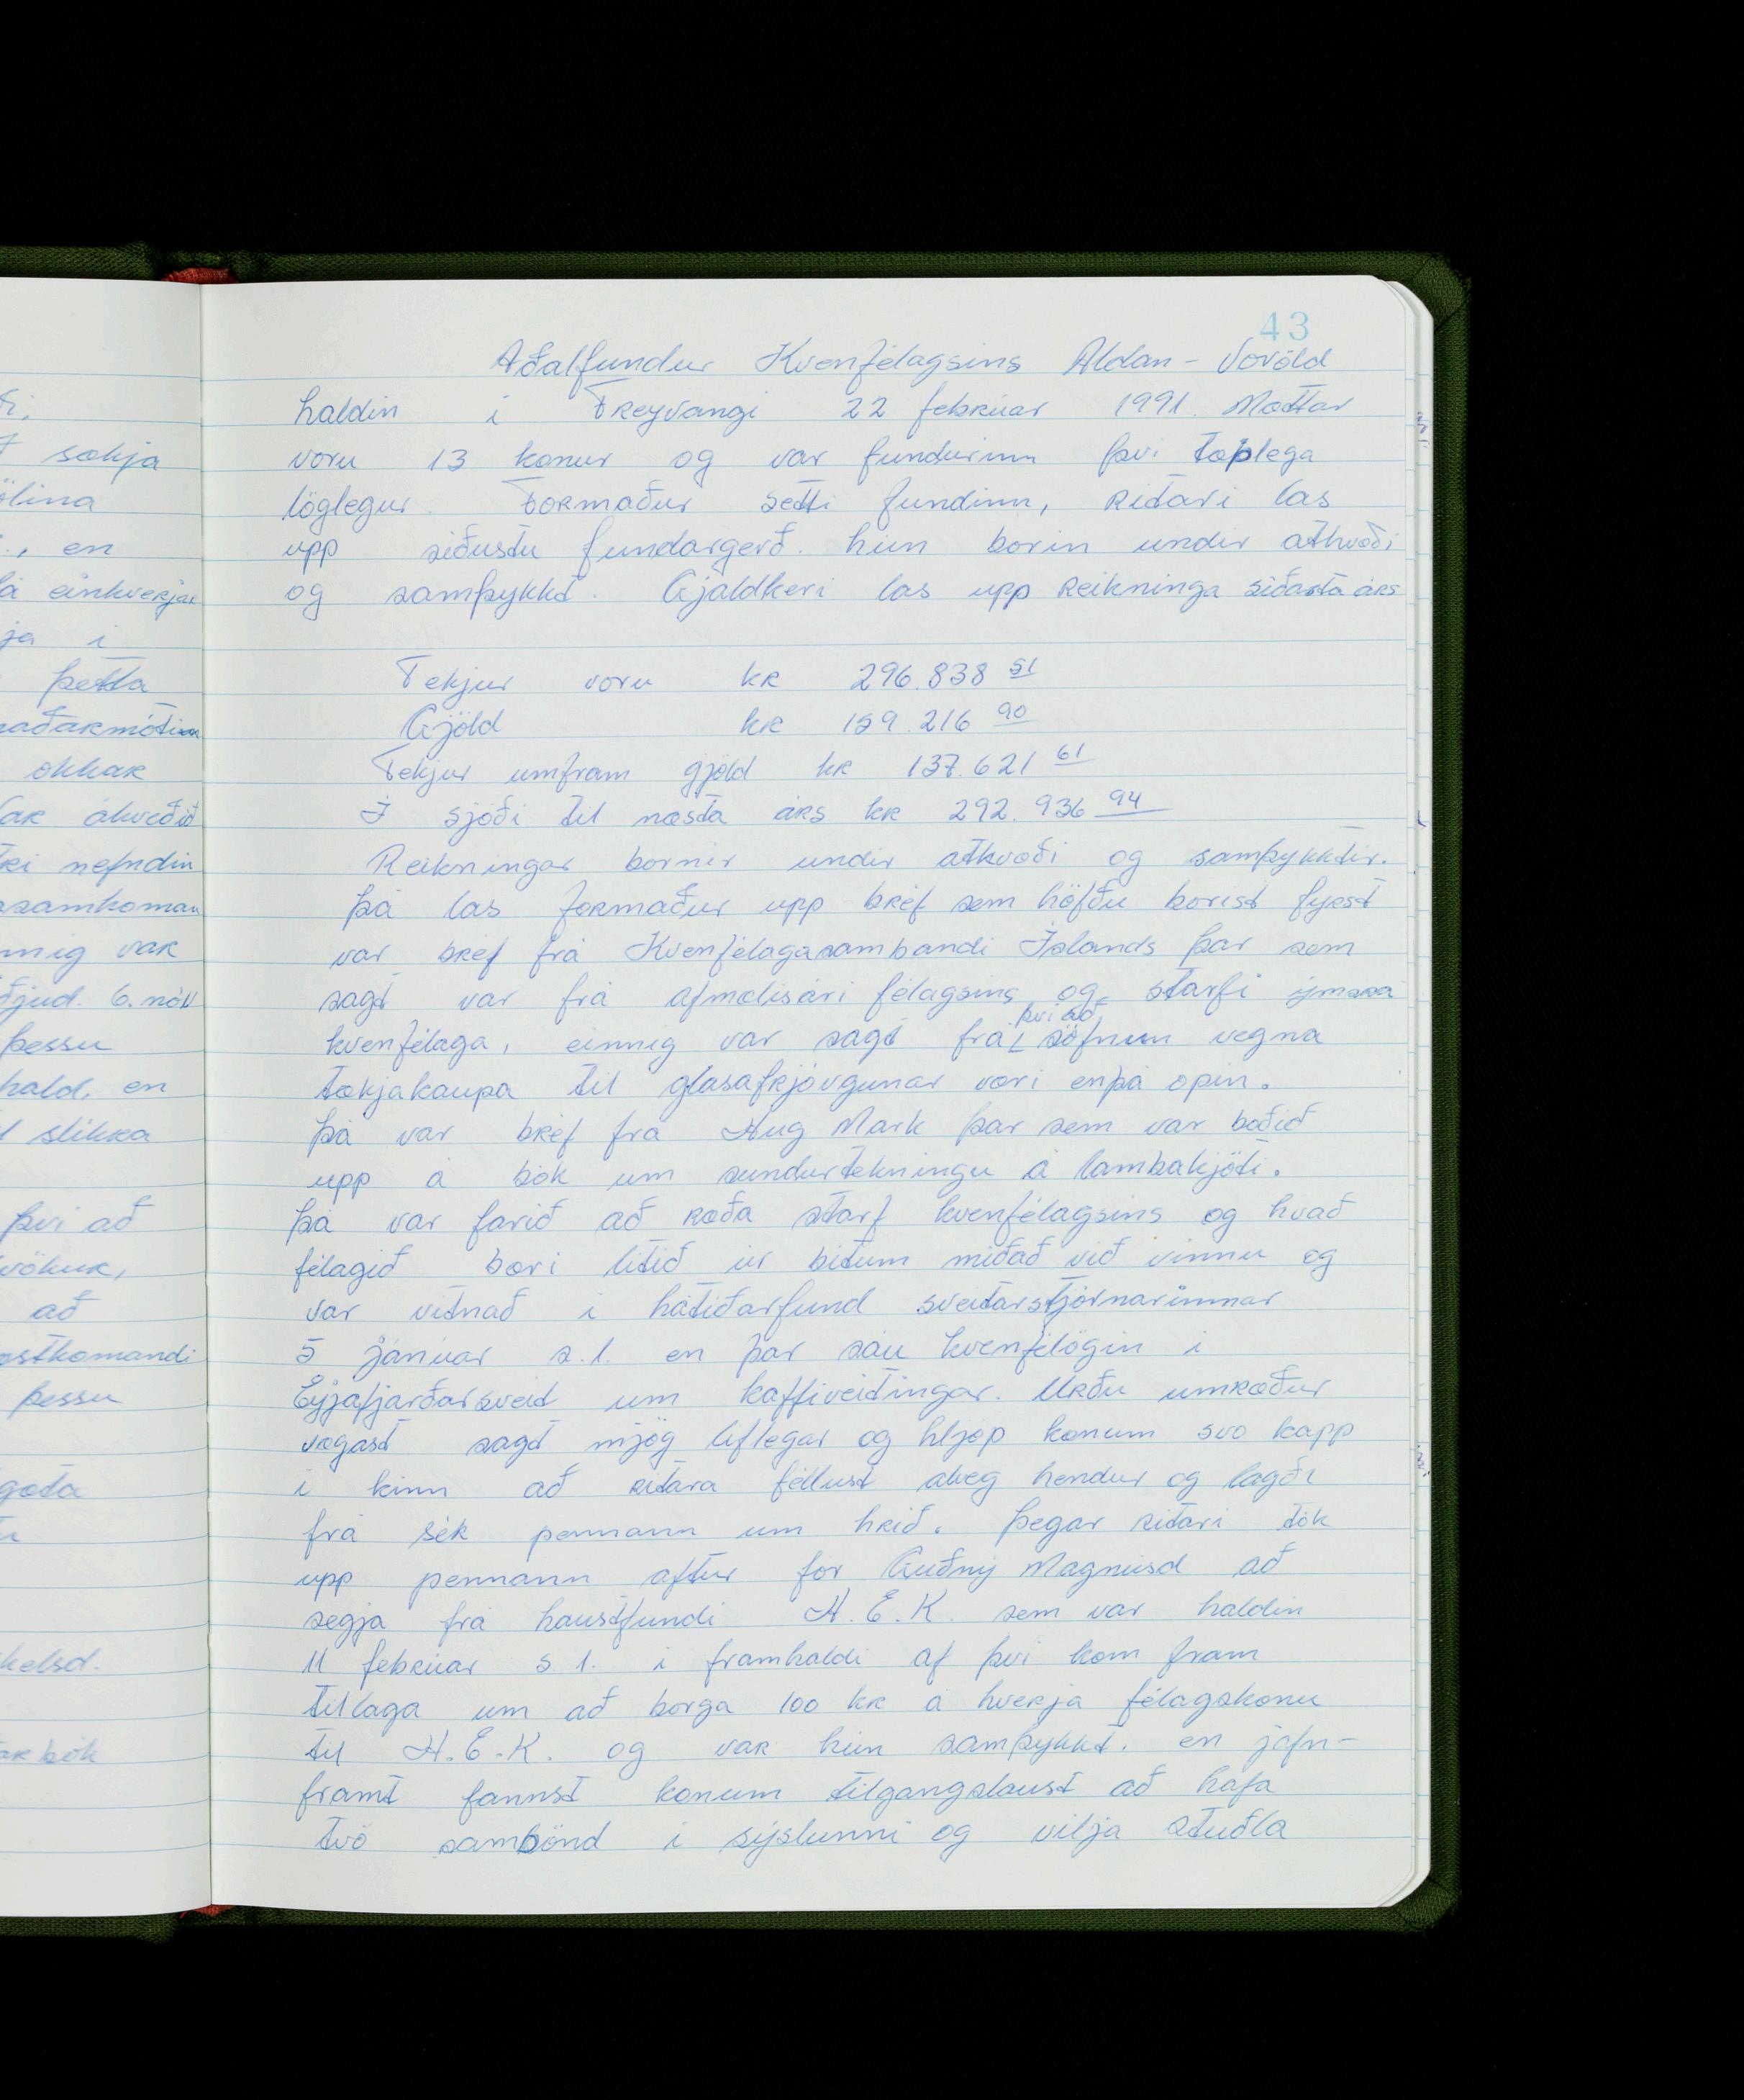 43
Aðalfundur Kvenfélagsins Aldan - Voröld
haldin i Freyvangi 22 febrúar 1991. Mættar
voru 13 konur og var fundurinn því tæplega
löglegur. Formaður setti fundinn, ritari las
upp síðustu fundargerð. hún borin undir atkvæði
og samþykkt. Gjaldkeri las upp reikninga síðasta árs
Tekjur voru kr 296.838 51
Gjöld kr 159.216 90
Tekjur umfram gjöld kr 137.621 61
Í sjóði til næsta árs kr 292.936 94
Reikningar bornir undir atkvæði og samþykktir.
Þá las formaður upp bréf sem höfðu borist fyrst
var bréf frá Kvenfélagasambandi Íslands þar sem
sagt var frá afmælisári félagsins og starfi ýmsra
kvenfélaga, einnig var sagt frá því að söfnun vegna
tækjakaupa til glasafrjóvgunar væri enþá opin.
Þá var bréf frá Hug Mark þar sem var boðið
upp á bók um sundurtekningu á lambakjöti.
Þá var farið að ræða starf kvenfélagsins og hvað
félagið bæri lítið úr bítum miðað við vinnu og
var vitnað í hátíðarfund sveitarstjórnarinnar
5 janúar s.l. en þar sáu kvenfélögin í
Eyjafjarðarsveit um kaffiveitingar. Urðu umræður
vægast sagt mjög líflegar og hljóp konum svo kapp
í kinn að ritara féllust alveg hendur og lagði
frá sér pennann um hríð. Þegar ritari tók
upp pennann aftur fór Guðný Magnúsd að
segja frá haustfundi H.E.K. sem var haldin
11 febrúar s.l. í framhaldi af því kom fram
tillaga um að borga 100 kr á hverja félagskonu
til H.E.K. og var hún samþykkt. en jafn-
framt fannst konum tilgangslaust að hafa
tvö sambönd í sýslunni og vilja stuðla
sækja
ölina
., en
einhverjar
ja í
þetta
aðarmótinu
okkar
ákveðið
nefndin
samkoman
nnig var
þjud. 6. nóv
þessu
hald, en
slíkra
því að
vökur,
að
stkomandi
þessu
gæta
kelsd.
ar bók